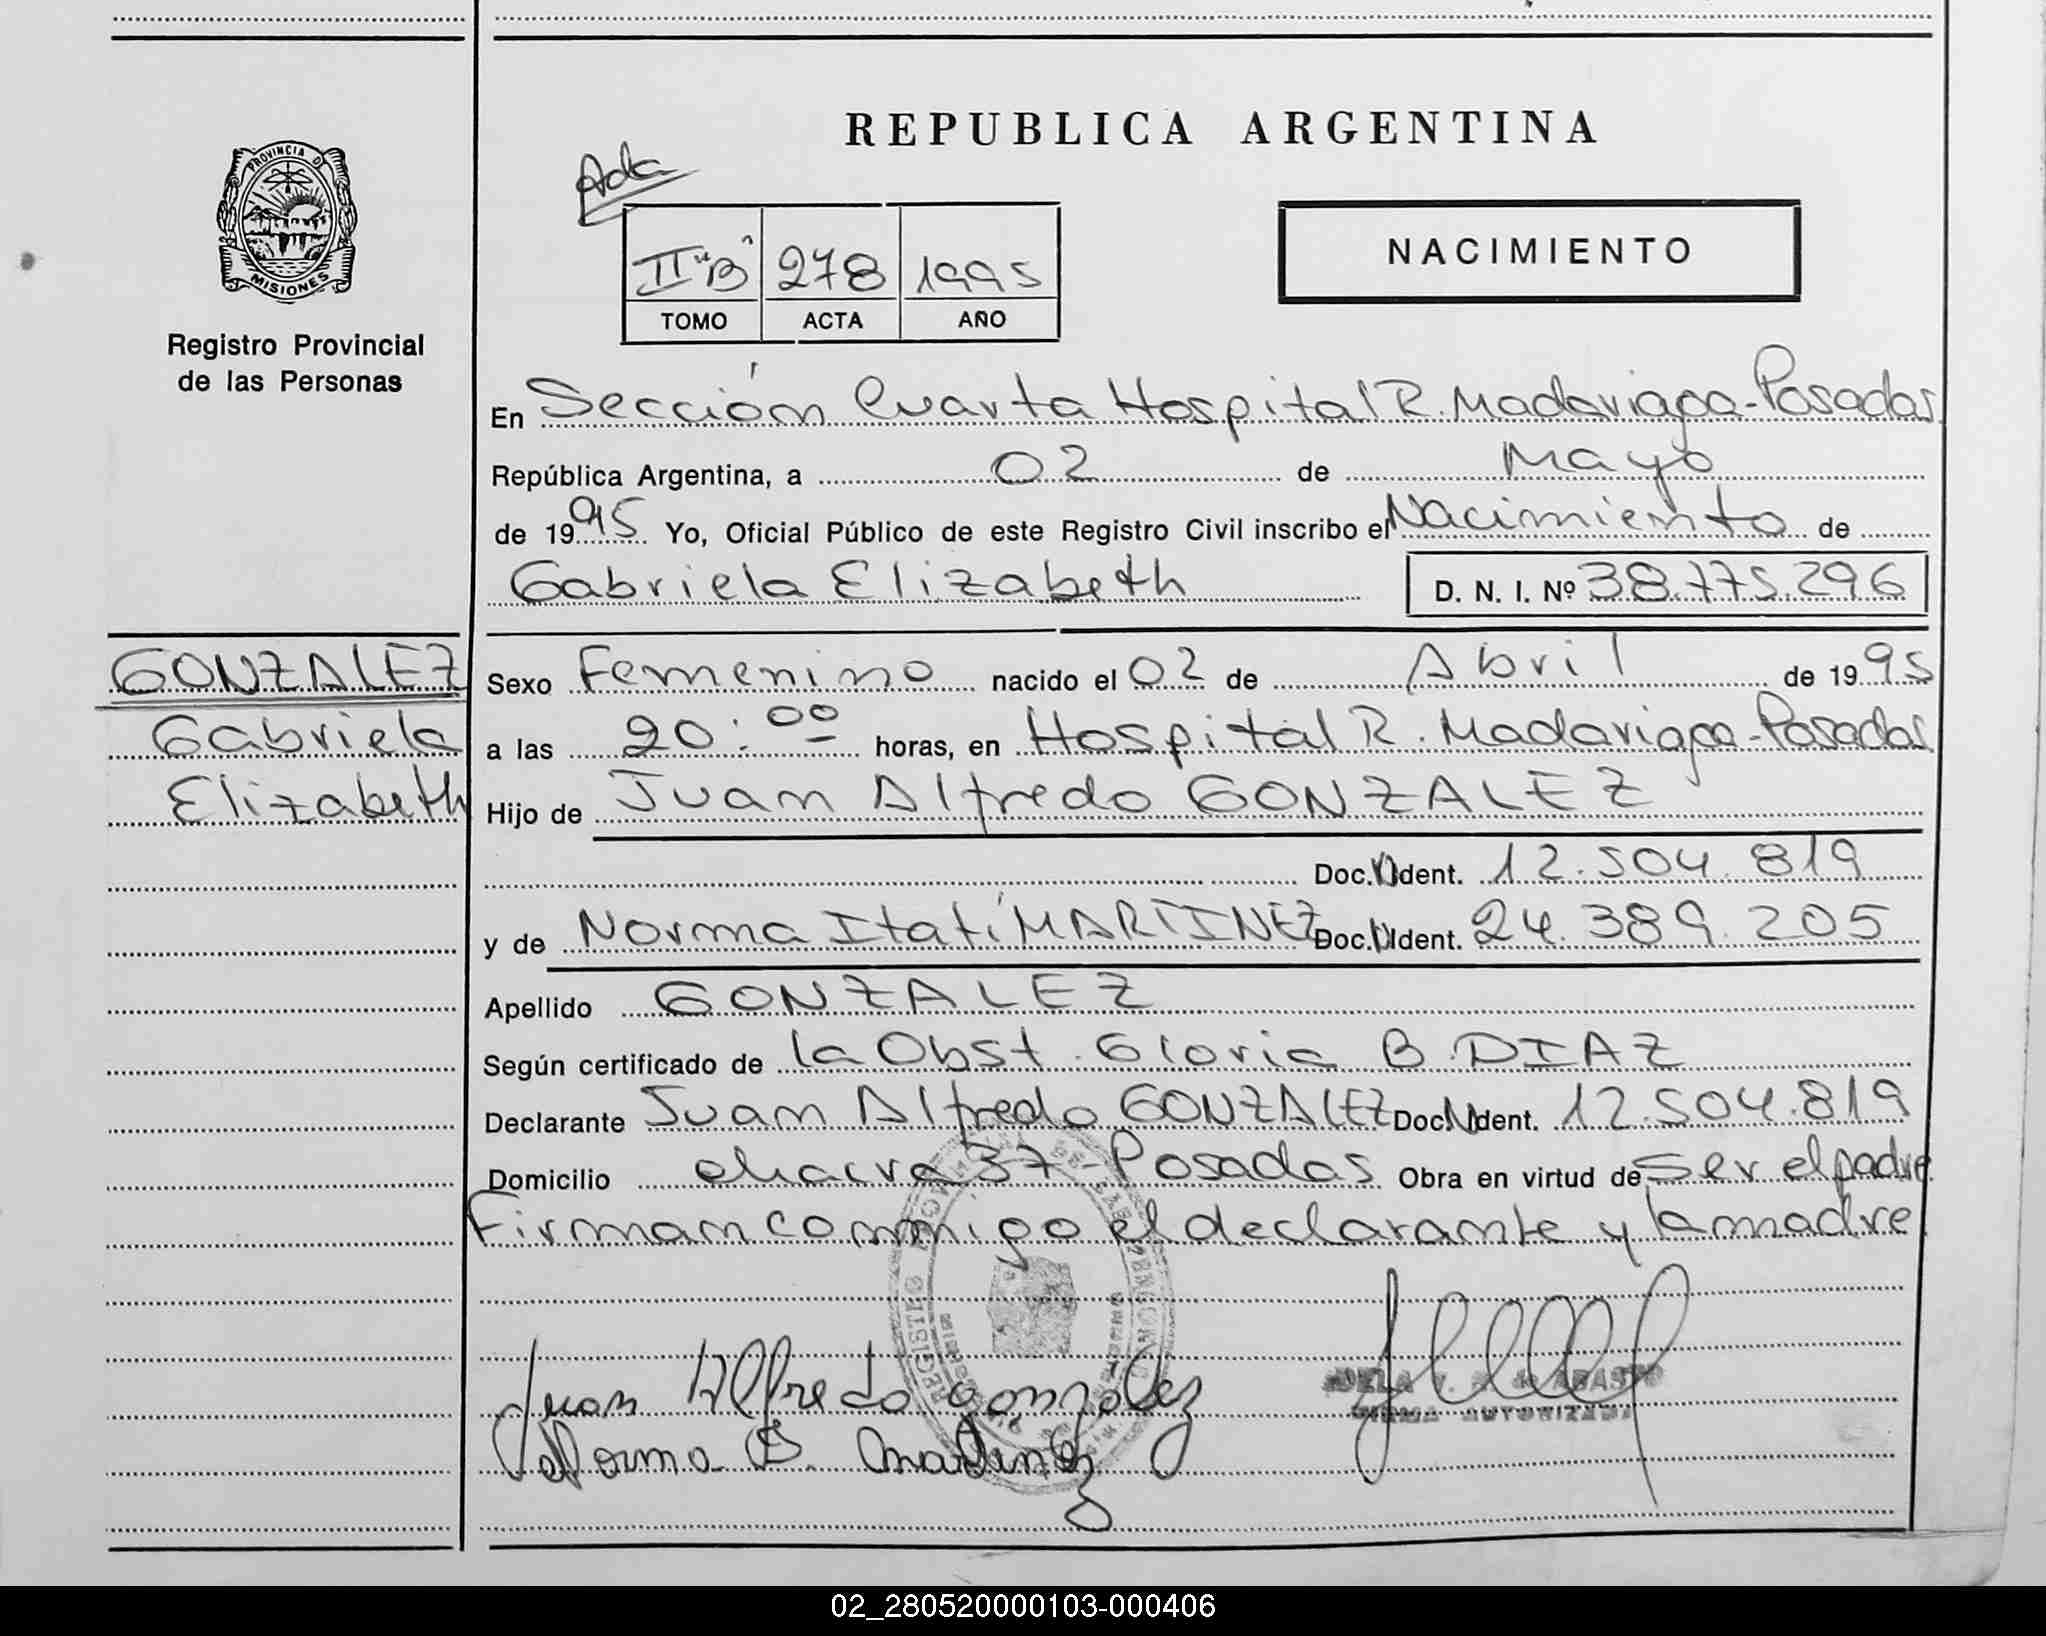 REPUBLICA ARGENTINA
Acta
PROVINCIA D
MISIONES
Registro Provincial
de las Personas
II "B" 278 1995
TOMO ACTA AÑO
NACIMIENTO
En Sección Cuarta Hospital R. Madariaga - Posadas
República Argentina, a 02 de Mayo
de 1995 Yo, Oficial Público de este Registro Civil inscribo el Nacimiento de
Gabriela Elizabeth D. N. I. Nº 38.775.296
GONZALEZ
Gabriela
Elizabeth
Sexo Femenino nacido el 02 de Abril de 1995
a las 20:00 horas, en Hospital R. Madariaga - Posadas
Hijo de Juan Alfredo GONZALEZ
Doc. Ident. 12.504.819
y de Norma Itatí MARTINEZ Doc. Ident. 24.389.205
Apellido GONZALEZ
Según certificado de la Obst. Gloria B. DIAZ
Declarante Juan Alfredo GONZALEZ Doc. Ident. 12.504.819
Domicilio chacra 37 - Posadas Obra en virtud de Ser el padre
Firman conmigo el declarante y la madre
REGISTRO
Juan Alfredo gonzalez
Norma I. Martinez
FIRMA AUTORIZADA
02_280520000103-000406